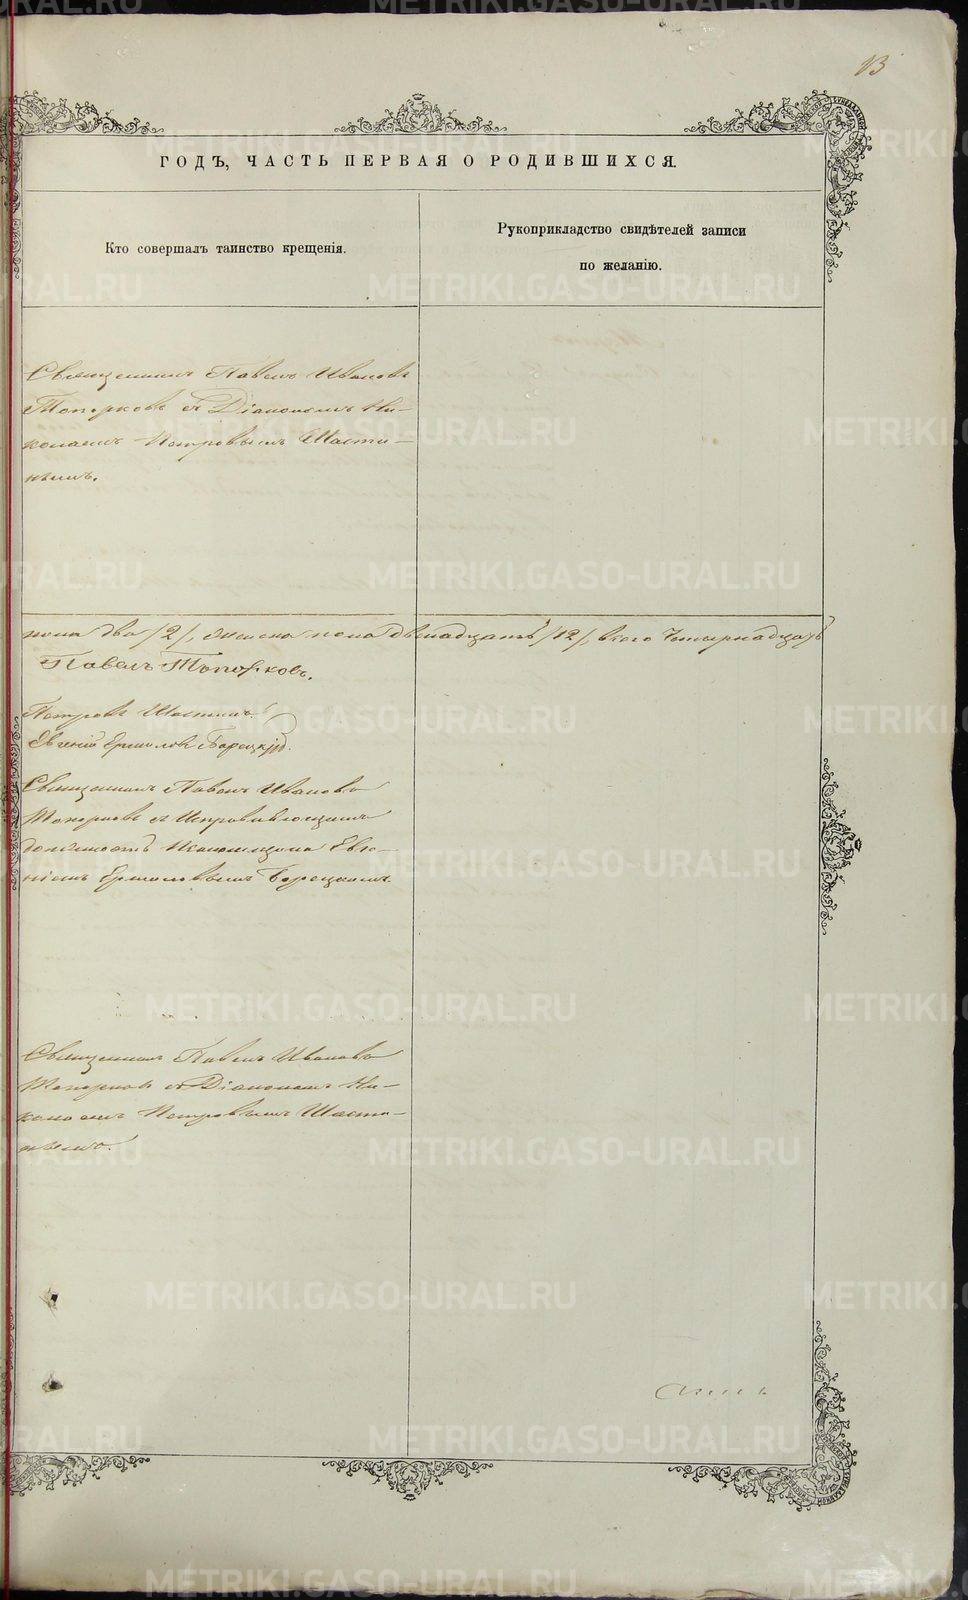 13
ГОДЪ, ЧАСТЬ ПЕРВАЯ О РОДИВШИХСЯ.
Кто совершалъ таинство крещенія.
Рукоприкладство свидѣтелей записи
по желанію.
Священникъ Павелъ Ивановъ
Топорковъ съ Діакономъ Ни-
колаемъ Петровымъ Шасти-
нымъ.
пола два /2/, женска пола двенадцать /12/, всего четырнадцать
Павелъ Топорковъ.
Петровъ Шастинъ.
Евгеній Ермиловъ Борецкій.
Священникъ Павелъ Ивановъ
Топорковъ съ Исправляющимъ
должность Псаломщика Евге-
ніемъ Ермиловымъ Борецкимъ.
Священникъ Павелъ Ивановъ
Топорковъ съ Діакономъ Ни-
колаемъ Петровымъ Шасти-
нымъ.
METRIKI.GASO-URAL.RU